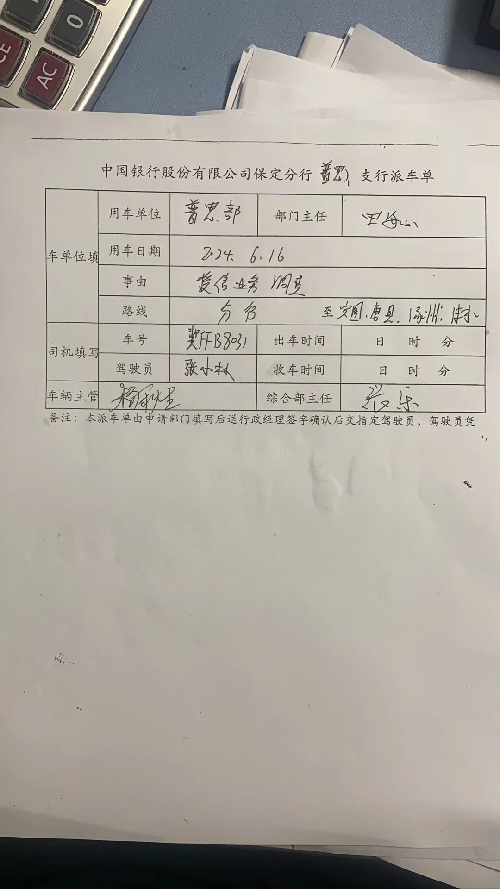 AC
0
中国银行股份有限公司保定分行 普惠 支行派车单
车单位填
用车单位 普惠部 部门主任
用车日期 2024. 6. 16
事由 授信业务 调查
路线 分行 至 定兴、唐县、涿州、
司机填写
车号 冀FFB8031 出车时间 日 时 分
驾驶员 张小林 收车时间 日 时 分
车辆主管 综合部主任
备注：本派车单由申请部门填写后送行政经理签字确认后交指定驾驶员，驾驶员凭